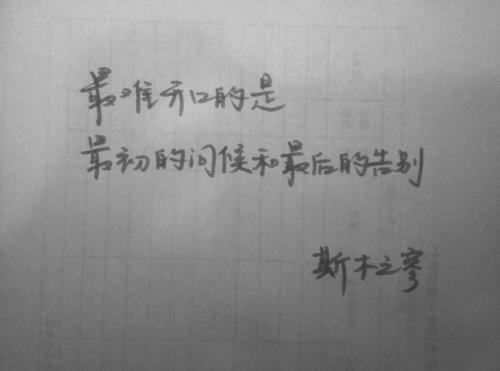 最难开口的是
最初的问候和最后的告别
斯木之寥